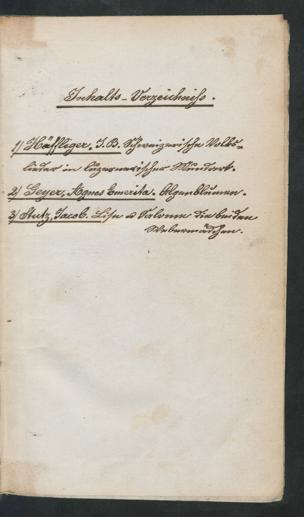 Inhalts-Verzeichniss.
1) Häffliger, J.B. Schweizerische Volks-
lieder in luzernerischer Mundart.
2) Geyer, Agnes Emerita. Alpenblumen.
3) Stutz, Jacob. Lise u Salome die beiden
Webermädchen.